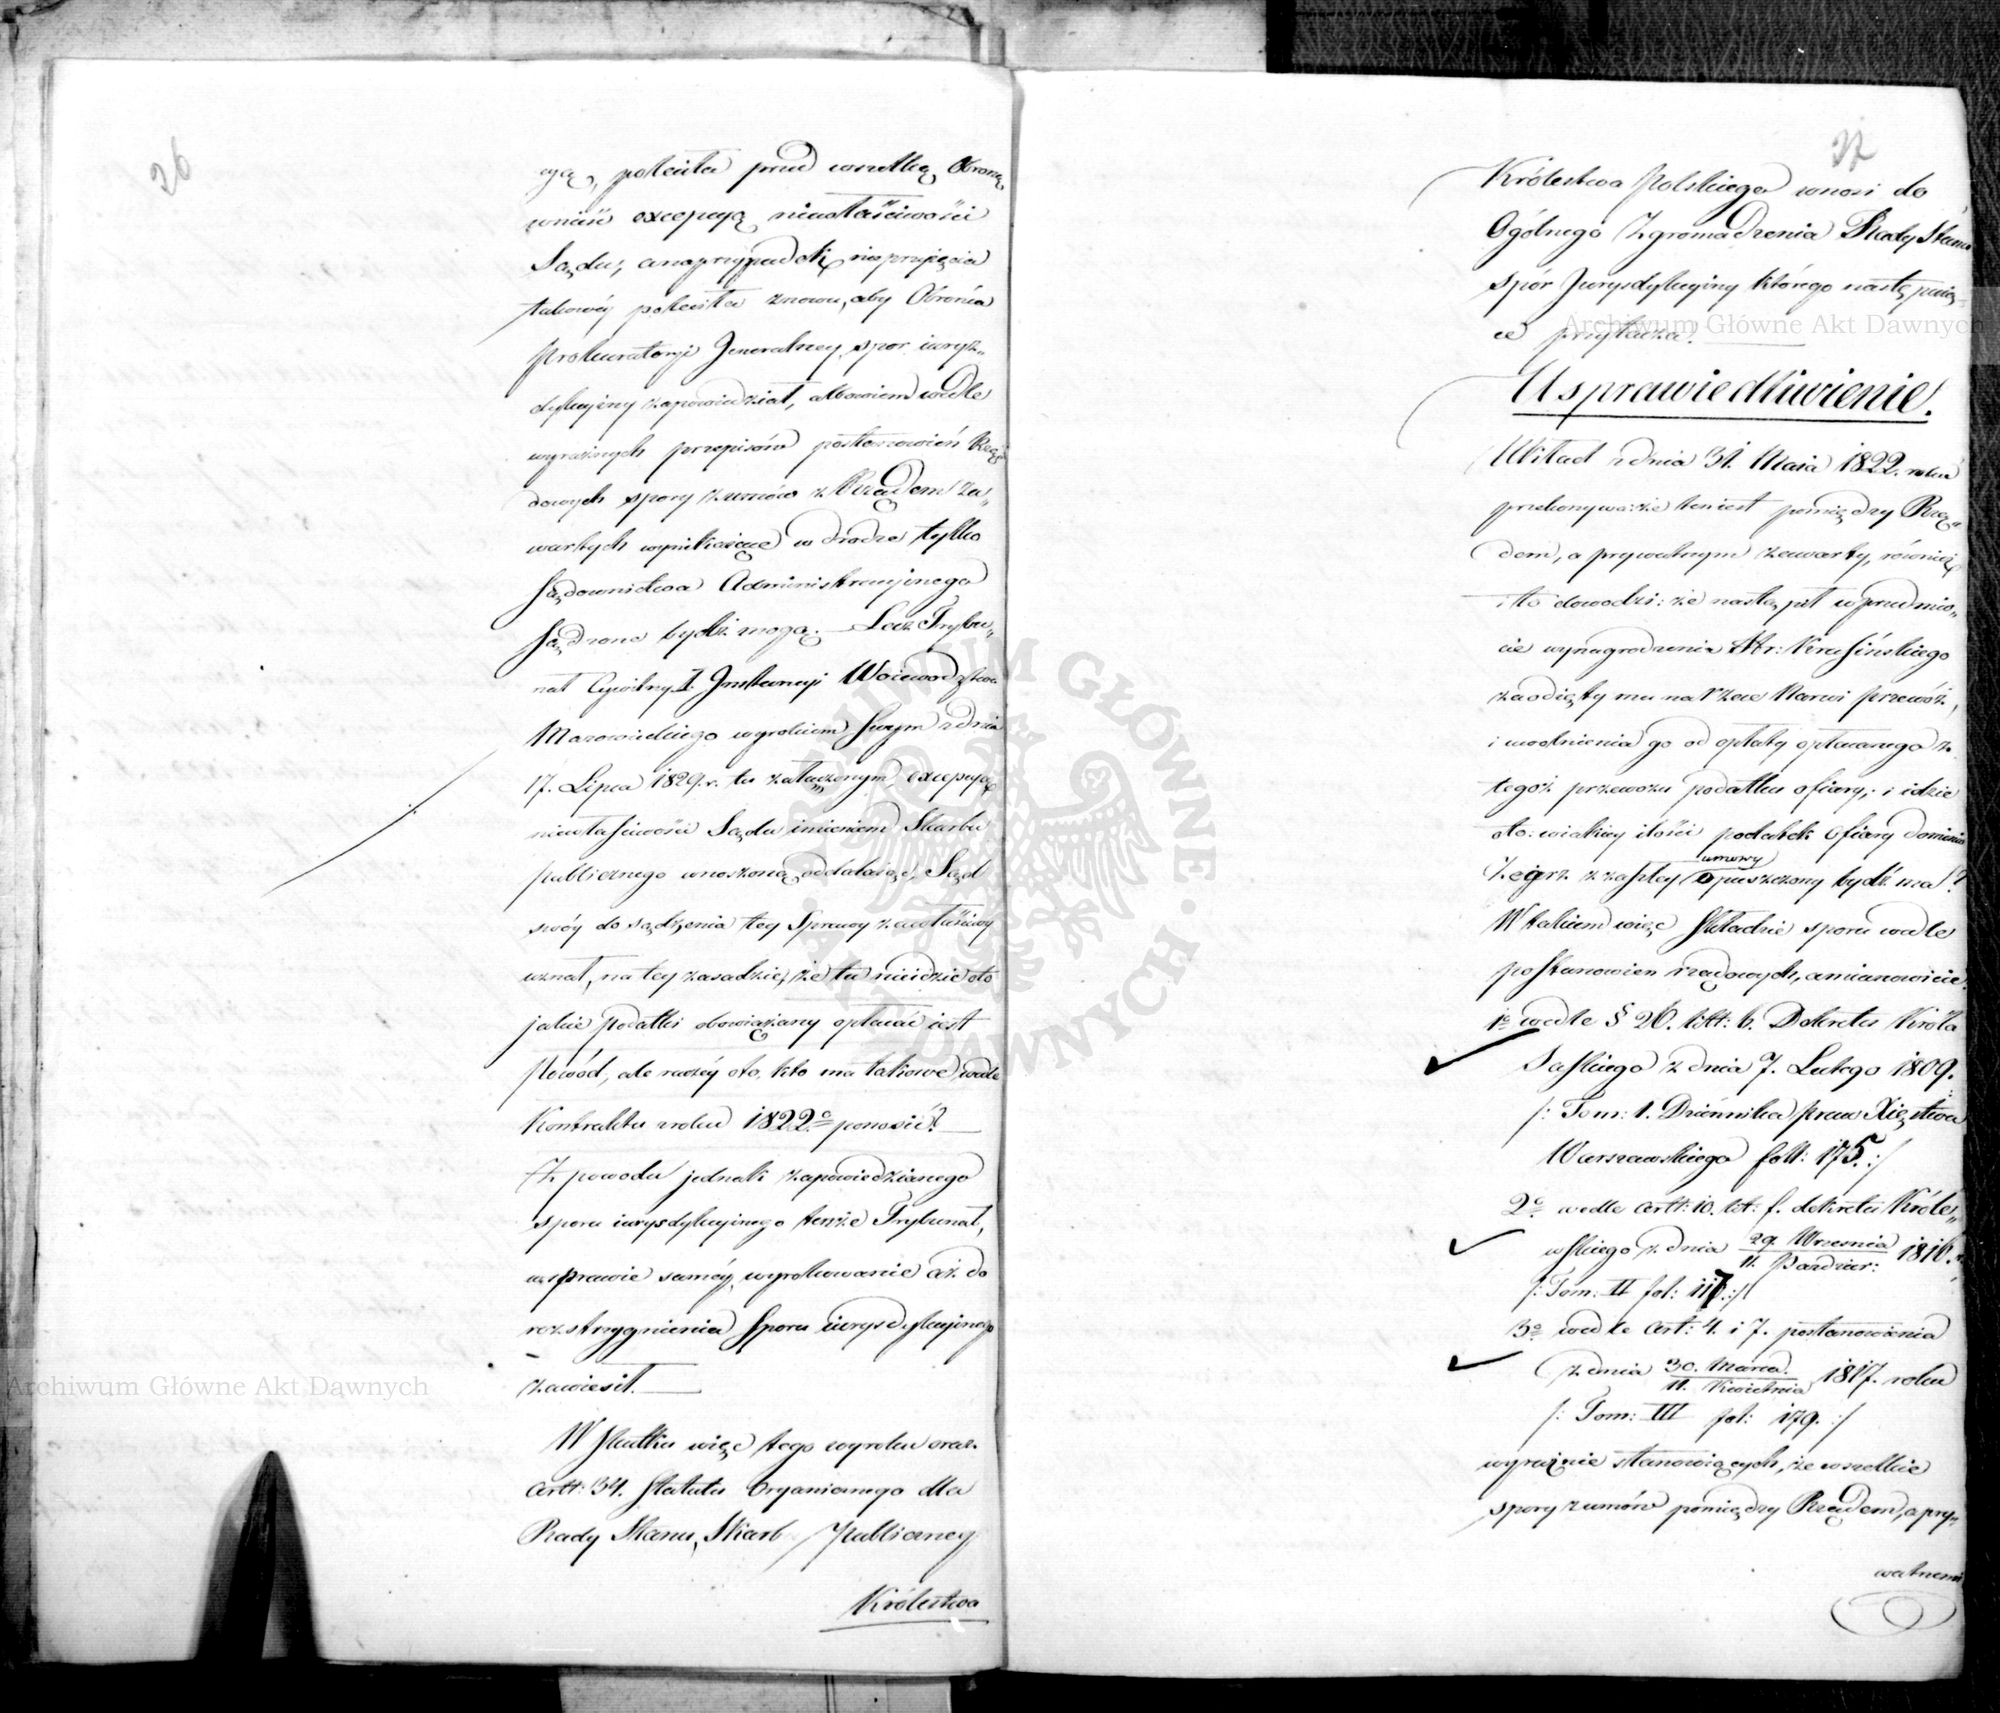 26
cyą, poleciła przed wszelką Obroną
wnieść excepcyą niewłaściwości
Sądu, a na przypadek nieprzyięcia
takowéy poleciła znowu, aby Obrońca
Prokuratoryi Jeneralney spor iuryz„
dykcyiny zapowiedział, albowiem wedle
wyraźnych przepisów postanowień Rzą„
dowych spory z umów z Rządem za„
wartych wynikaiące w drodze tylko
Sądownictwa Administracyinego
Sądzone bydź mogą. — Lecz Trybu„
nał Cywilny I. Instancyi Woiewództwa
Mazowieckiego wyrokiem swym z dnia
17. Lipca 1829. r. tu załączonym, excepcyą
niewłaściwości Sądu imieniem Skarbu
publicznego wnoszoną oddalaiąc, Sąd
swóy do sądzenia tey Sprawy za właściwy
uznał, na tey zasadzie, że tu nieidzie oto
jakie podatki obowiązany opłacać iest
Powód, ale raczéy oto, kto ma takowe wedle
Kontraktu z roku 1822º ponosić? —
Z powodu jednak zapowiedzianego
sporu iurysdykcyinego tenże Trybunał,
w sprawie saméy wyrokowanie aż do
rozstrzygnienia Sporu iurysdykcyinego
zawiesił. —
W skutku więc tego wyroku oraz
Artt: 34. Statutu Organicznego dla
Rady Stanu, Skarb Publiczney
Królestwa
27
Królestwa Polskiego wnosi do
Ogólnego Zgromadzenia Rady Stanu
spór Jurysdykcyiny którego następuią„
ce przytacza.
Usprawiedliwienie.
Układ z dnia 31. Maia 1822. roku
przekonywa: że ten iest pomiędzy Rzą„
dem, a prywatnym zawarty, również
i to dowodzi: że nastąpił w przedmio„
cie wynagrodzenia Hr: Krasińskiego
za odięty mu na rzece Narwi przewóz,
i uwolnienia go od opłaty opłacanego z
tegoż przewozu podatku ofiary; i idzie
oto: w iakiey ilości podatek Ofiary dominium
Zegrz z zaszłey umowy opuszczony bydź ma?
W takiem więc składzie sporu wedle
postanowien rządowych, a mianowicie:
1º wedle § 26. litt: b. Dekretu Króla
Saskiego z dnia 7. Lutego 1809.
/: Tom: 1. Dziennika praw Xięstwa
Warszawskiego foll: 175. :/
2º wedle Artt: 10. lit: f. dekretu Króle„
wskiego z dnia 29. Września / 11. Paździer: 1816. r.
/: Tom: II fol: 117. :/
3º wedle Art: 4. i 7. postanowienia
z dnia 30. Marca / 11. Kwietnia 1817. roku
/: Tom: III fol: 179. :/
wyraźnie stanowiących, że wszelkie
spory z umów pomiędzy Rządem, a pry„
watnemi
Archiwum Główne Akt Dawnych
Archiwum Główne Akt Dawnych
ARCHIWUM GŁÓWNE · AKT DAWNYCH ·